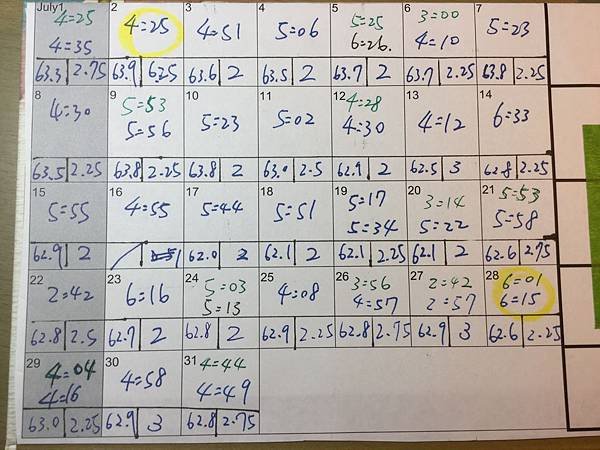 July1
4=25
4=35
63.3 2.75
2
4=25
63.9 6.25
3
4=51
63.6 2
4
5=06
63.5 2
5
5=25
6=26.
63.7 2
6
3=00
4=10
63.7 2.25
7
5=23
63.8 2.25
8
4=30
63.5 2.25
9
5=53
5=56
63.8 2.25
10
5=23
63.8 2
11
5=02
63.0 2.5
12
4=28
4=30
62.9 2
13
4=12
62.5 3
14
6=33
62.8 2.25
15
5=55
62.9 2
16
4=55
17
5=44
62.0 2
18
5=51
62.1 2
19
5=17
5=34
62.1 2.25
20
3=14
5=22
62.1 2
21
5=53
5=58
62.6 2.75
22
2=42
62.8 2.5
23
6=16
62.7 2
24
5=03
5=13
62.8 2
25
4=08
62.9 2.25
26
3=56
4=57
62.8 2.75
27
2=42
2=57
62.9 3
28
6=01
6=15
62.6 2.25
29
4=04
4=16
63.0 2.25
30
4=58
62.9 3
31
4=44
4=49
62.8 2.75